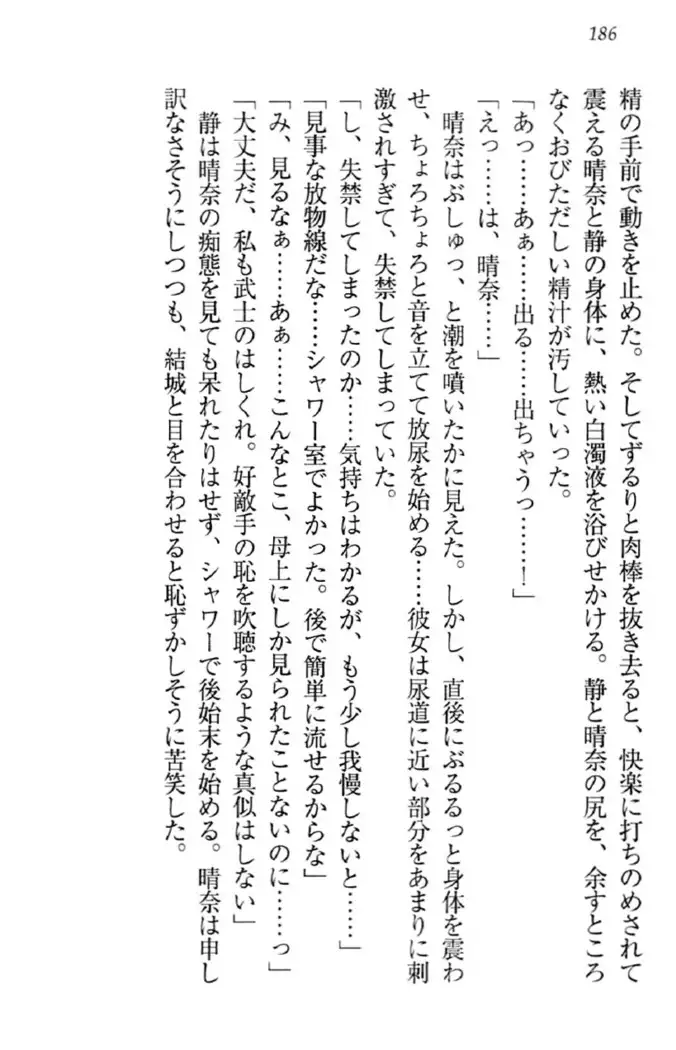 186
精の手前で動きを止めた。そしてずるりと肉棒を抜き去ると、快楽に打ちのめされて
震える晴奈と静の身体に、熱い白濁液を浴びせかける。静と晴奈の尻を、余すところ
なくおびただしい精汁が汚していった。
「あっ……あぁ……出る……出ちゃうっ……！」
「えっ……は、晴奈……」
晴奈はぶしゅっ、と潮を噴いたかに見えた。しかし、直後にぶるるっと身体を震わ
せ、ちょろちょろと音を立てて放尿を始める……彼女は尿道に近い部分をあまりに刺
激されすぎて、失禁してしまっていた。
「し、失禁してしまったのか……気持ちはわかるが、もう少し我慢しないと……」
「見事な放物線だな……シャワー室でよかった。後で簡単に流せるからな」
「み、見るなぁ……あぁ……こんなとこ、母上にしか見られたことないのに……っ」
「大丈夫だ、私も武士のはしくれ。好敵手の恥を吹聴するような真似はしない」
静は晴奈の痴態を見ても呆れたりはせず、シャワーで後始末を始める。晴奈は申し
訳なさそうにしつつも、結城と目を合わせると恥ずかしそうに苦笑した。